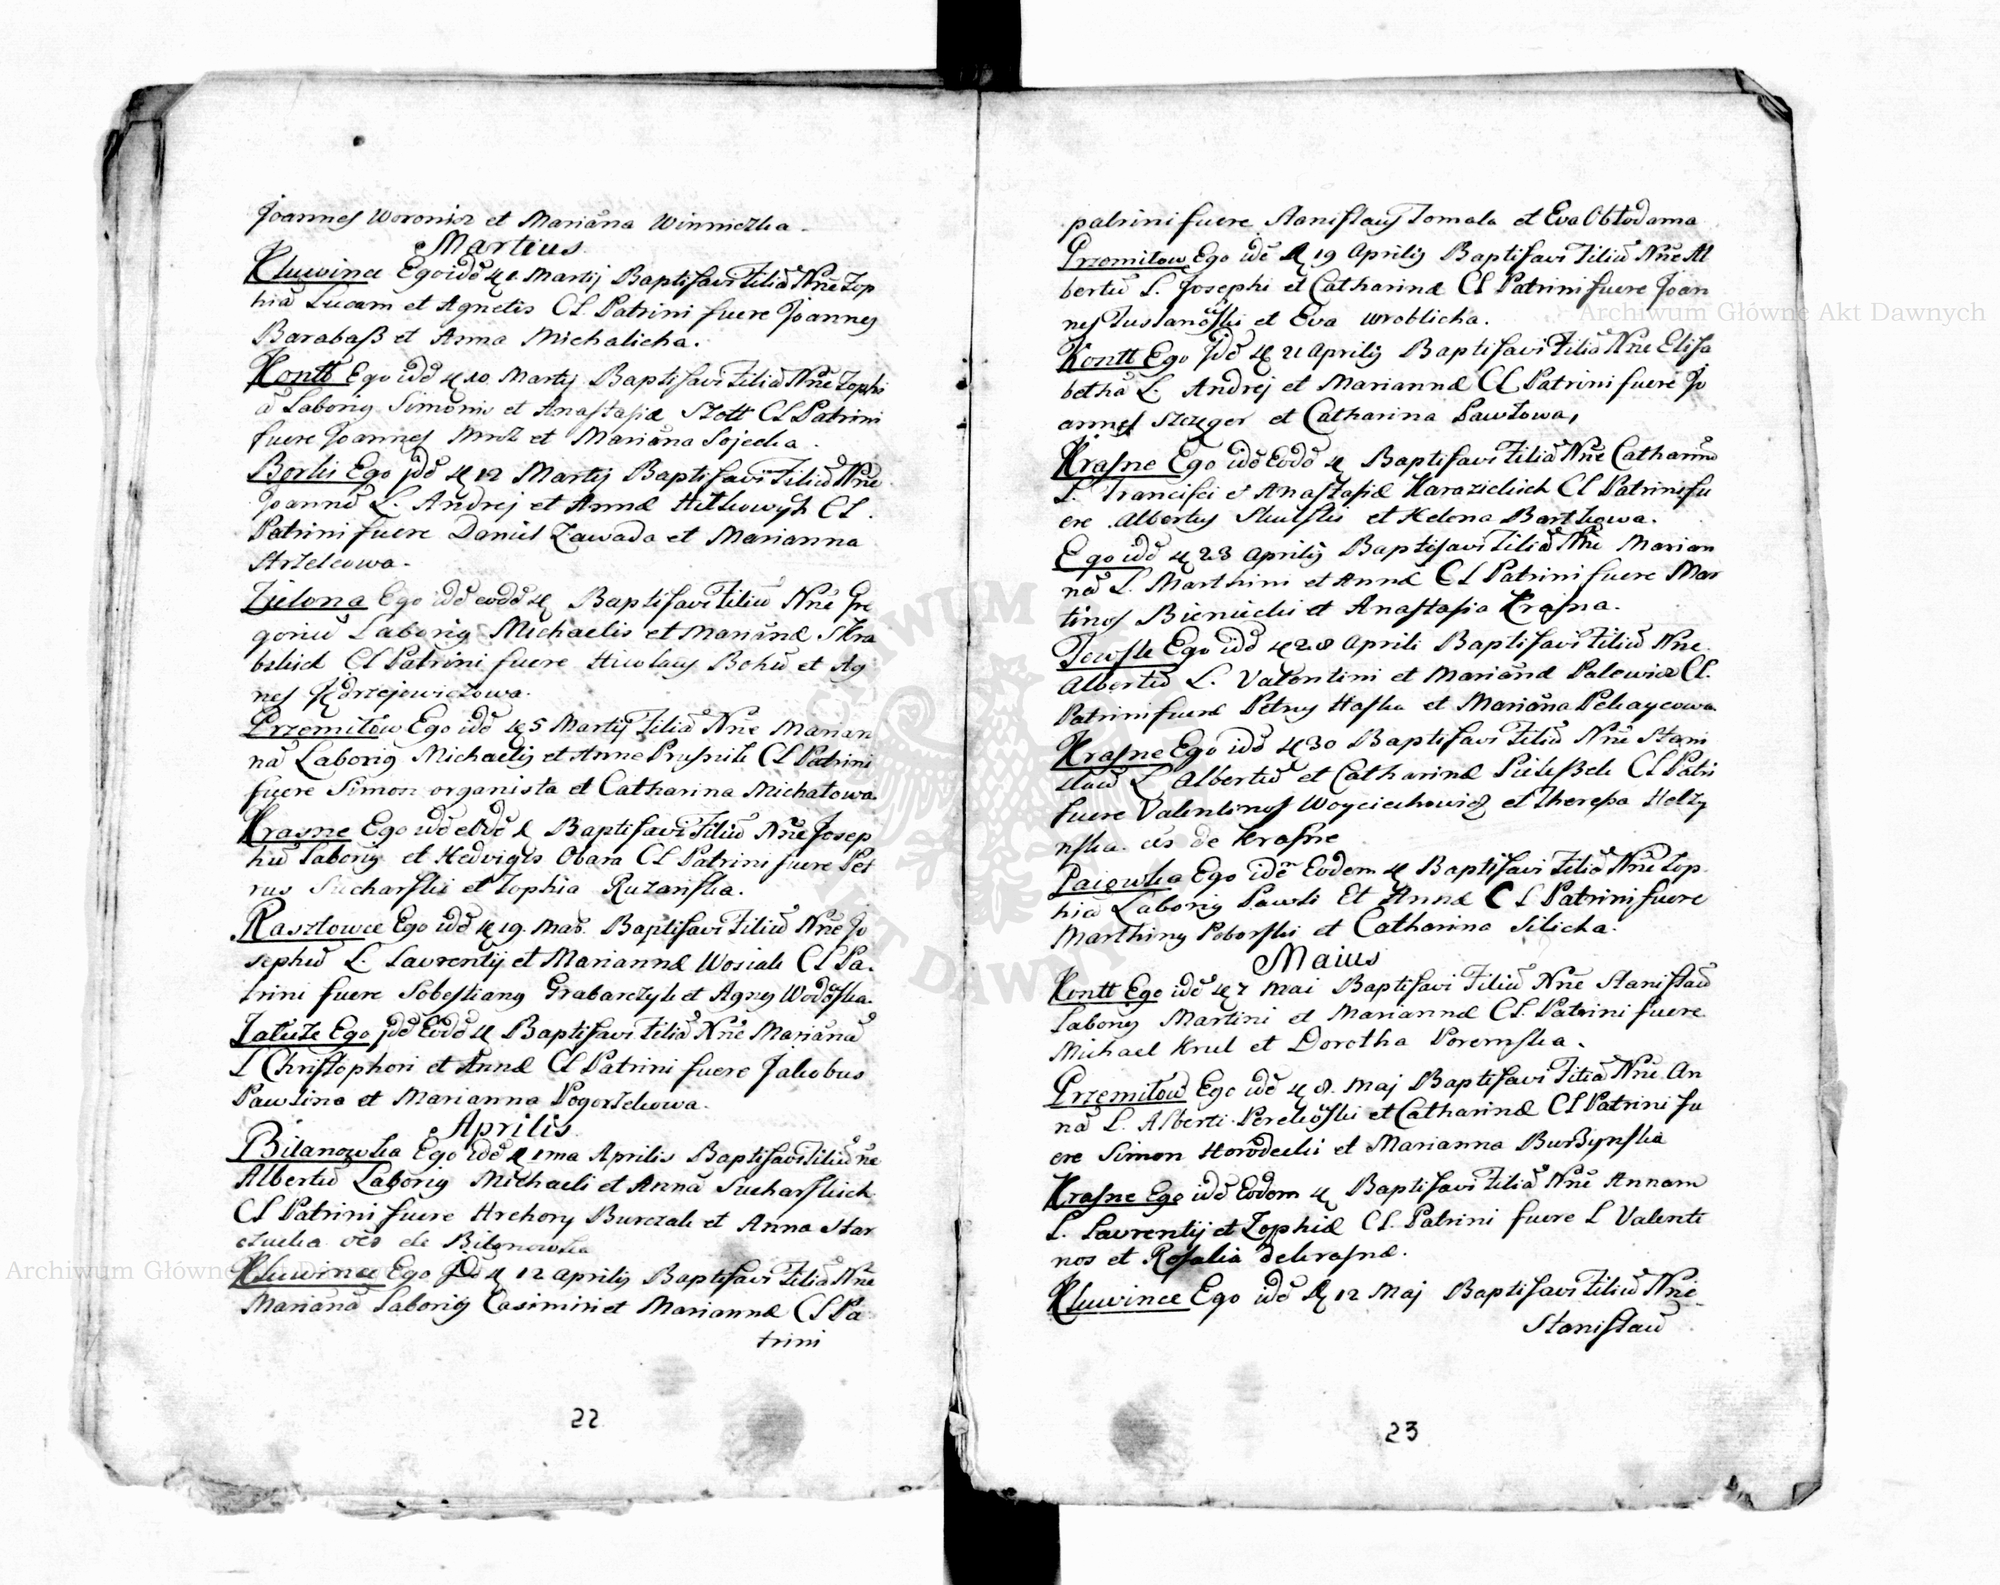 Joannes Woronicz et Mariana Winniczka.
Martius
Kluwince Ego idē 1. Martij Baptisavi Filiā Nñe Zop
hiā Lucam et Agnetis CL. Patrini fuere Joannes
Barabaß et Anna Michalicha.
Kontt Ego idē 10. Martij Baptisavi Filiā Nñe Zophi
ā Laborig Simonis et Anastasiæ Szott CL Patrini
fuere Joannes et Mariāna Sojecka.
Borki Ego idē 12 Martij Baptisavi Filiū Nñe
Joannē L. Andrej et Annæ CL.
Patrini fuere Daniel Zawada et Marianna
Strzelcowa.
Zielona Ego idē eodē Baptisavi Filiū Nñe Gre
goriū Laborig Michaelis et Mariānæ Skra
bskich CL Patrini fuere Nicolaus Bohu et Ag
nes Jędrzejewiczowa.
Przemiłow Ego idē 5 Martij Filiā Nñe Marian
nā Laborig Michaelis et Anne Prusnik CL Patrini
fuere Simon organista et Catharina Michałowa.
Krasne Ego idē eōdē Baptisavi Filiū Nñe Josep
hū Laborig et Hedvigis Obara CL Patrini fuere Pet
rus Sucharski et Zophia Ruzańska.
Rasztowce Ego idē 19. Mar. Baptisavi Filiū Nñe Jo
sephū L. Laurentij et Mariannæ Wosiak CL Pa.
trini fuere Sobestians Grabarczyk et Agnes
Ego idē Eodē Baptisavi Filiā Nñe Mariānā
L Christophori et Annæ CL Patrini fuere Jakobus
Pawlina et Marianna Pogorzelcowa.
Aprilis
Bilanowka Ego idē 1ma Aprilis Baptisavi Filiū ñe
Albertū Laborig Michaeli et Annā Sucharskich
CL Patrini fuere Hrehory Burczak et Anna Star
czucha de Bilanowka
Kluwince Ego 12 Aprilis Baptisavi Filiā Nñe
Mariānā Laborig Casimiri et Mariannæ CL Pa
trini
22
patrini fuere Stanislaus Tomala et Eva Obłodama
Przemiłow Ego idē 19 Aprilis Baptisavi Filiū Nñe Al
bertū L. Josephi et Catharinæ CL Patrini fuere Joan
nes et Eva Wroblicha.
Kontt Ego idē 21 Aprilis Baptisavi Filiā Nñe Elisa
bethā L. Andrej et Mariannæ CL Patrini fuere Jo
annes et Catharina Pawłowa,
Krasne Ego idē Eodē Baptisavi Filiā Nñe Catharinā
L. Francisci et Anastasiæ Karazickich CL Patrini fu
ere Albertus Skulski et Helena Bartkowa.
Ego idē 23 Aprilis Baptisavi Filiā Nñe Marian
nā L. Marthini et Annæ CL Patrini fuere Mar
tinos Bieniecki et Anastasia Krasna.
Ego idē 28 Aprili Baptisavi Filiū Nñe
Albertū L. Valentini et Mariānæ Palewicz CL.
Patrini fuere Petrus Haska et Mariāna
Krasne Ego idē 30 Baptisavi Filiū Nñe Stani
slaū L Albertū et Catharinæ CL Patri
fuere Valentinos Woyciechowicz et Theresa Helzy
nska de Krasne
Paiowka Ego idē Eodem Baptisavi Filiā Nñe Zop
hiā Laborig Pawli Et Annæ CL Patrini fuere
Marthinus Poborski et Catharina Silicha.
Maius
Kontt Ego idē 7 Mai Baptisavi Filiū Nñe Stanislaū
Laborig Martini et Mariannæ CL. Patrini fuere
Michael Krul et Dorotha Poremska.
Przemiłow Ego idē 8. Maj Baptisavi Filiā Nñe An
nā L. Alberti et Catharinæ CL Patrini fu
ere Simon Horodecki et Marianna Burzynska
Krasne Ego idē Eodem Baptisavi Filiā Nñe Annam
L. Laurentij et Zophiæ CL. Patrini fuere L Valenti
nos et Rosalia de krasnæ.
Kluwince Ego idē 12 Maj Baptisavi Filiū Nñe
Stanislaū
23
Archiwum Główne Akt Dawnych
Archiwum Główne Akt Dawnych
ARCHIWUM GŁÓWNE AKT DAWNYCH